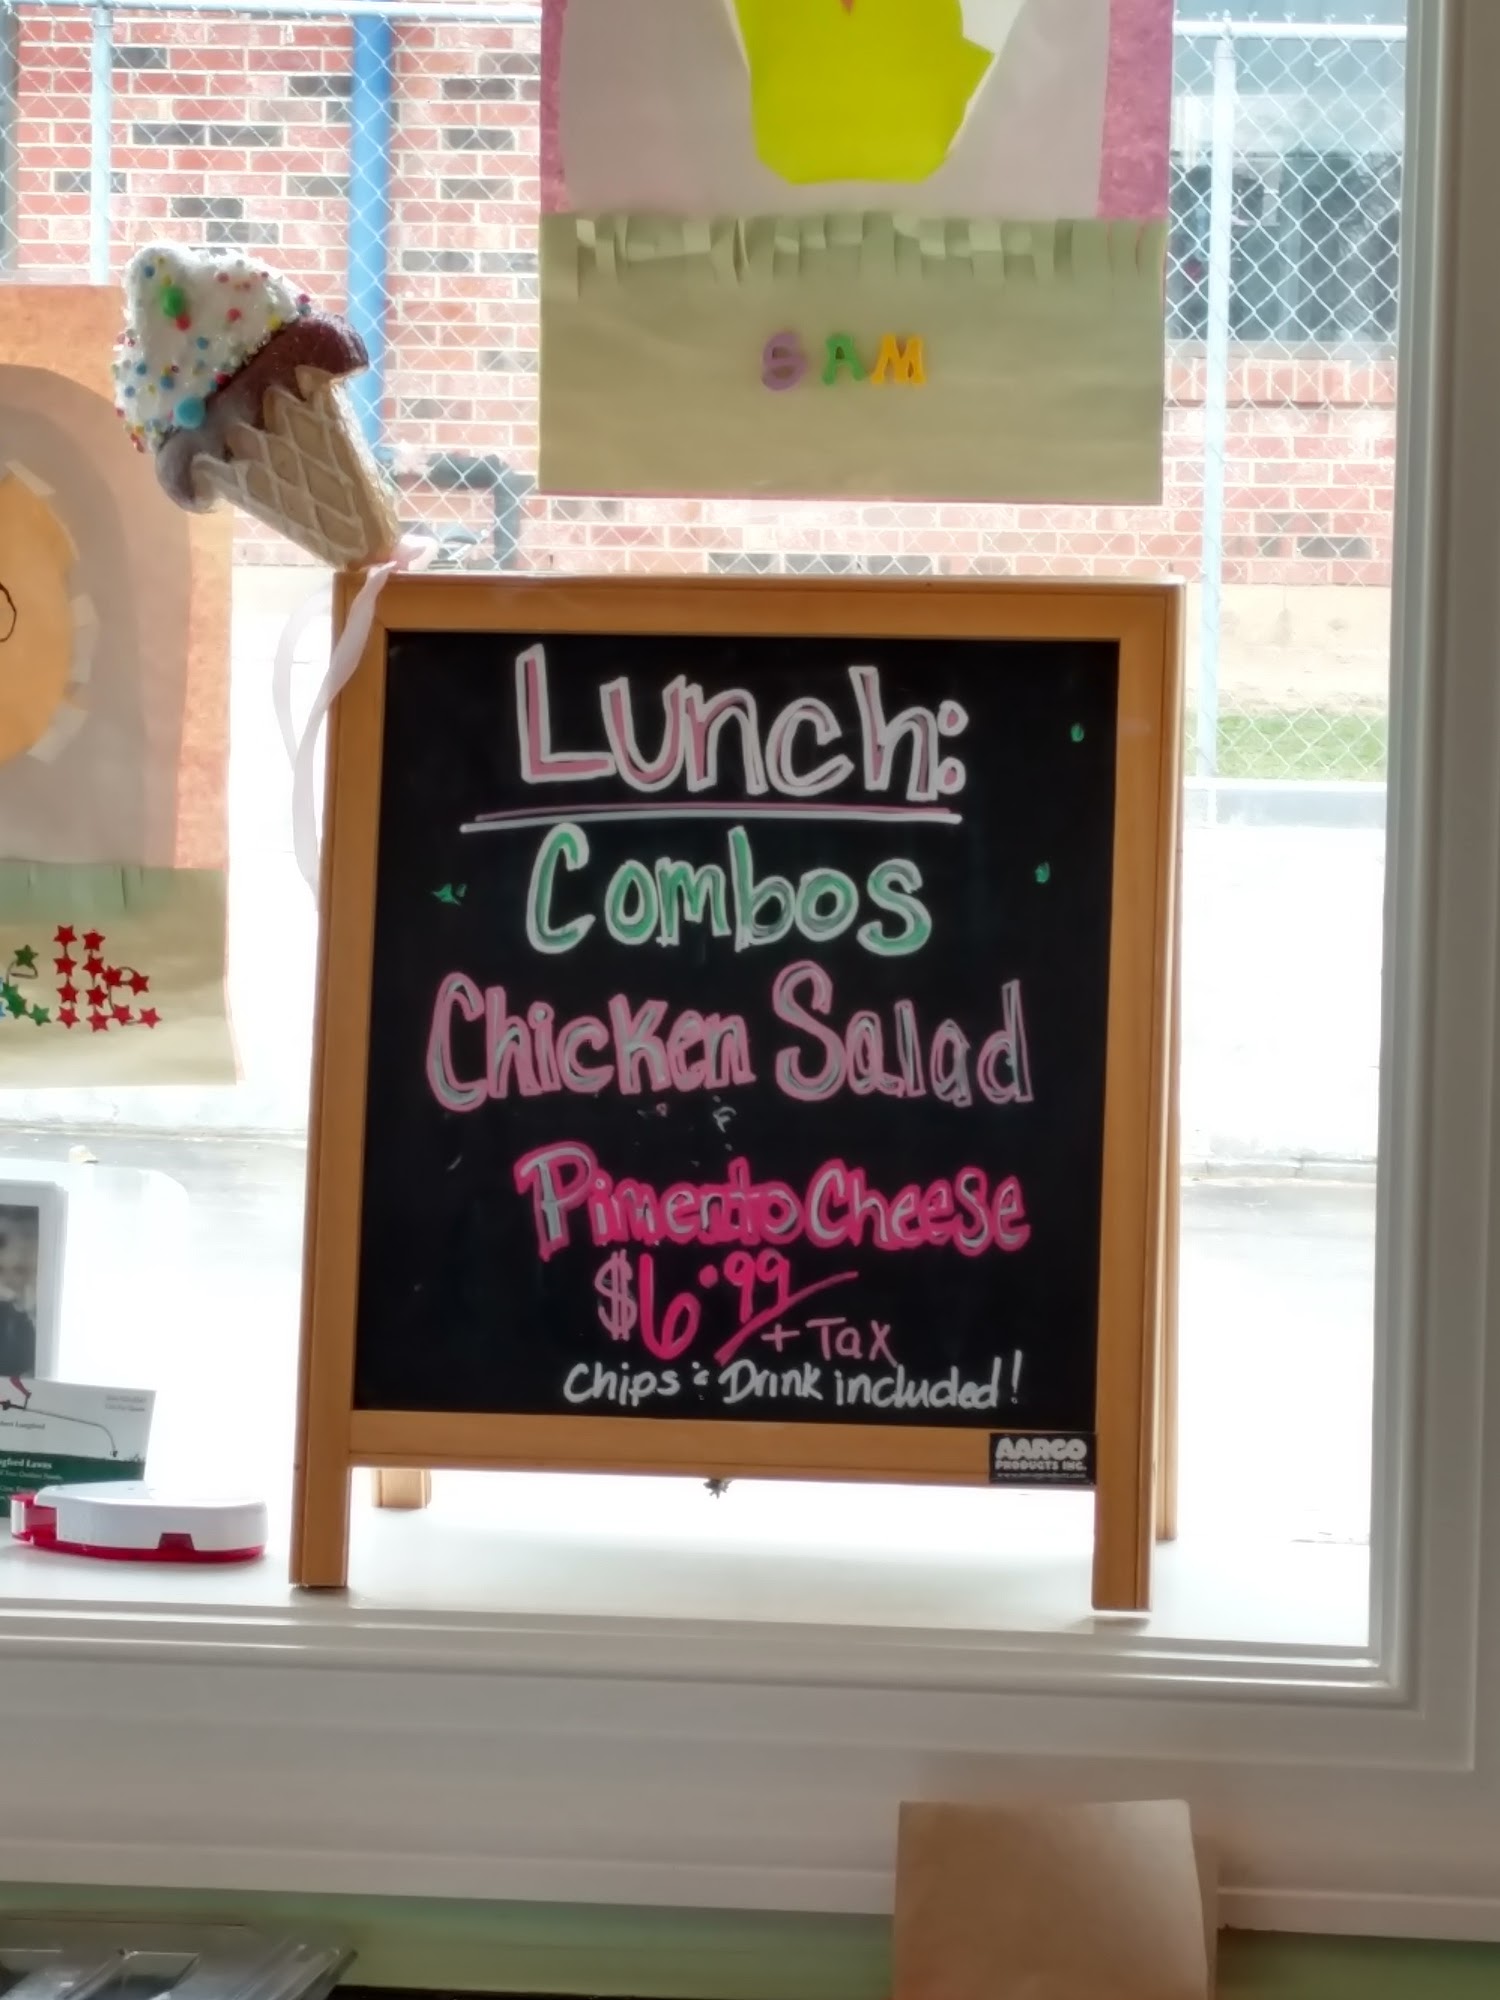 SAM
Lunch:
Combos
Chicken Salad
Pimento Cheese
$6.99
+ Tax
Chips & Drink included!
AARCO
PRODUCTS INC.